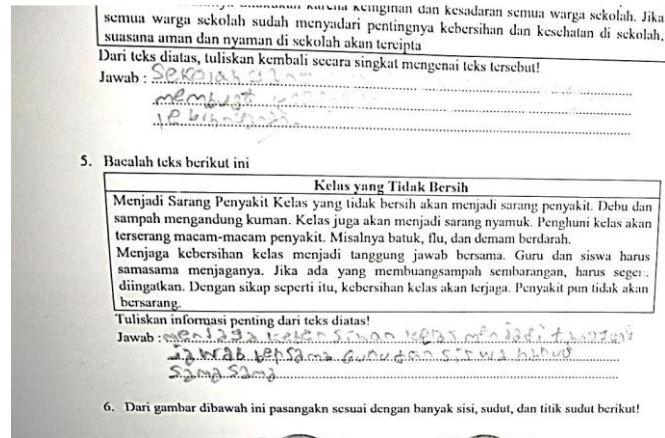 karena keinginan dan kesadaran semua warga sekolah. Jika
semua warga sekolah sudah menyadari pentingnya kebersihan dan kesehatan di sekolah,
suasana aman dan nyaman di sekolah akan tercipta
Dari teks diatas, tuliskan kembali secara singkat mengenai teks tersebut!
Jawab : Sekolah
membuat
lebih
5. Bacalah teks berikut ini
Kelas yang Tidak Bersih
Menjadi Sarang Penyakit Kelas yang tidak bersih akan menjadi sarang penyakit. Debu dan
sampah mengandung kuman. Kelas juga akan menjadi sarang nyamuk. Penghuni kelas akan
terserang macam-macam penyakit. Misalnya batuk, flu, dan demam berdarah.
Menjaga kebersihan kelas menjadi tanggung jawab bersama. Guru dan siswa harus
samasama menjaganya. Jika ada yang membuangsampah sembarangan, harus seger
diingatkan. Dengan sikap seperti itu, kebersihan kelas akan terjaga. Penyakit pun tidak akan
bersarang.
Tuliskan informasi penting dari teks diatas!
Jawab : menjaga kebersihan kelas menjadi
jawab bersama Guru dan siswa
sama sama
6. Dari gambar dibawah ini pasangakn sesuai dengan banyak sisi, sudut, dan titik sudut berikut!